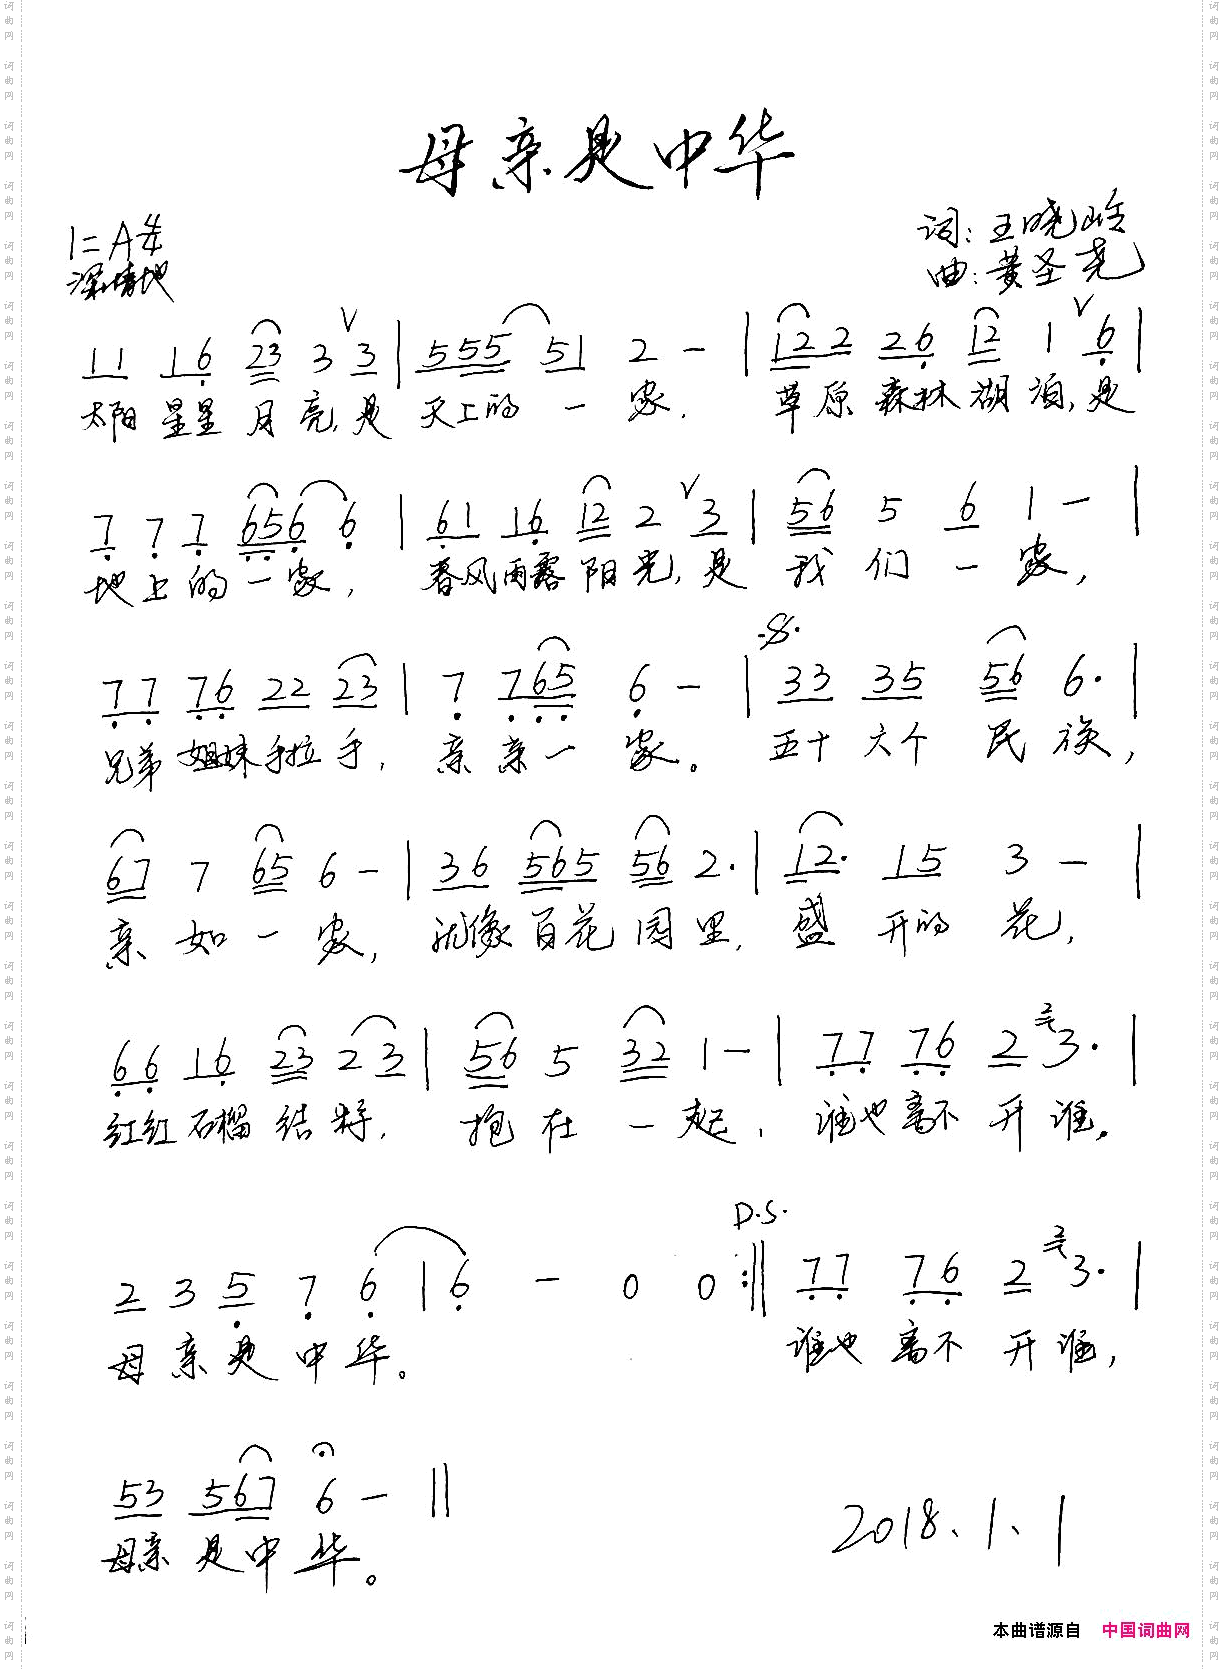 母亲是中华
1=A 4/4
深情地
词:王晓岭
曲:黄圣尧
11 16 23 3 3 | 555 51 2 - | 122 26 12 1 6 |
太阳星星月亮,是天上的一家. 草原森林湖泊,是
7 7 7 656 6 | 61 16 12 2 3 | 56 5 6 1 - |
地上的一家, 春风雨露阳光,是我们一家,
77 76 22 23 | 7 765 6 - | 33 35 56 6· |
兄弟姐妹手拉手, 亲亲一家。 五十六个民族,
67 7 65 6 - | 36 565 56 2· | 12· 15 3 - |
亲如一家, 就像百花园里, 盛开的花,
66 16 23 2 3 | 56 5 32 1 - | 77 76 2 3· |
红红石榴结籽, 抱在一起, 谁也离不开谁。
D.S.
2 3 5 7 6 | 6 - 0 0 :‖ 77 76 2 3· |
母亲是中华。 谁也离不开谁,
53 567 6 - ‖
母亲是中华。
2018、1、1
本曲谱源自 中国词曲网